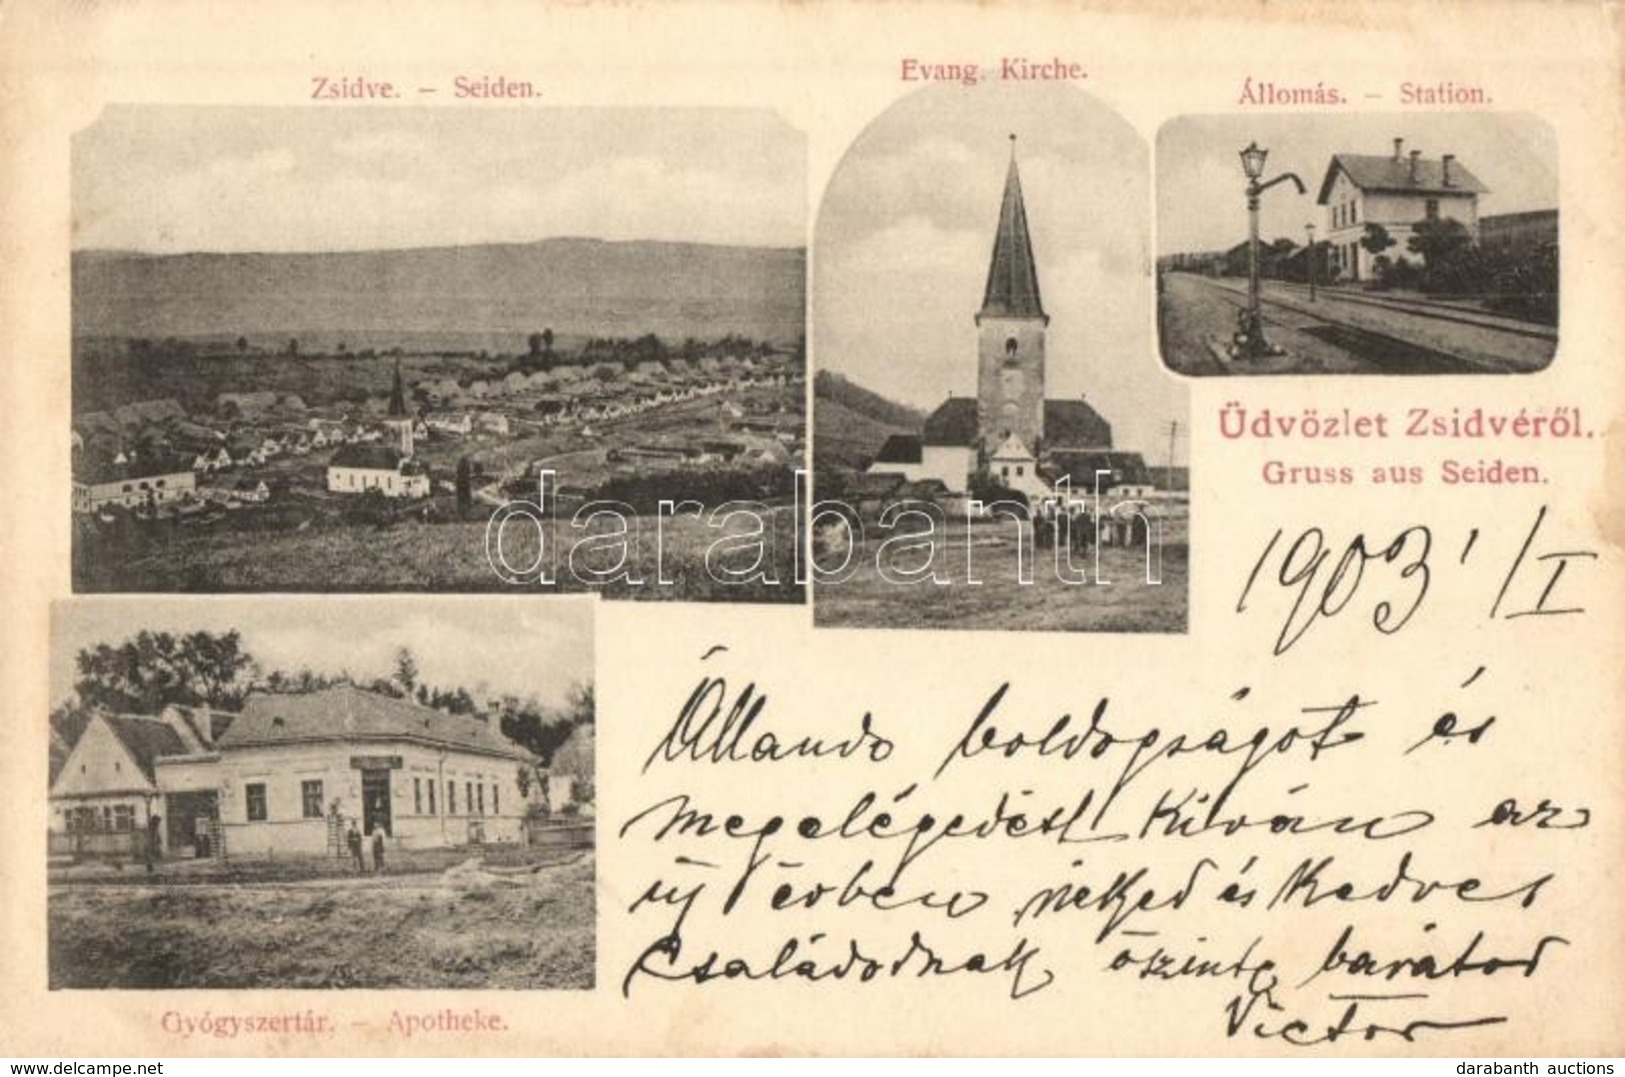 Zsidve. – Seiden.
Evang. Kirche.
Állomás. – Station.
Üdvözlet Zsidvéről.
Gruss aus Seiden.
1903 1/I
Állando boldogságot és
megelégedést kiván az
új évben neked és kedves
családodnak őszinte barátod
Victor
Gyógyszertár. – Apotheke.
darabanth
www.delcampe.net
darabanth auctions